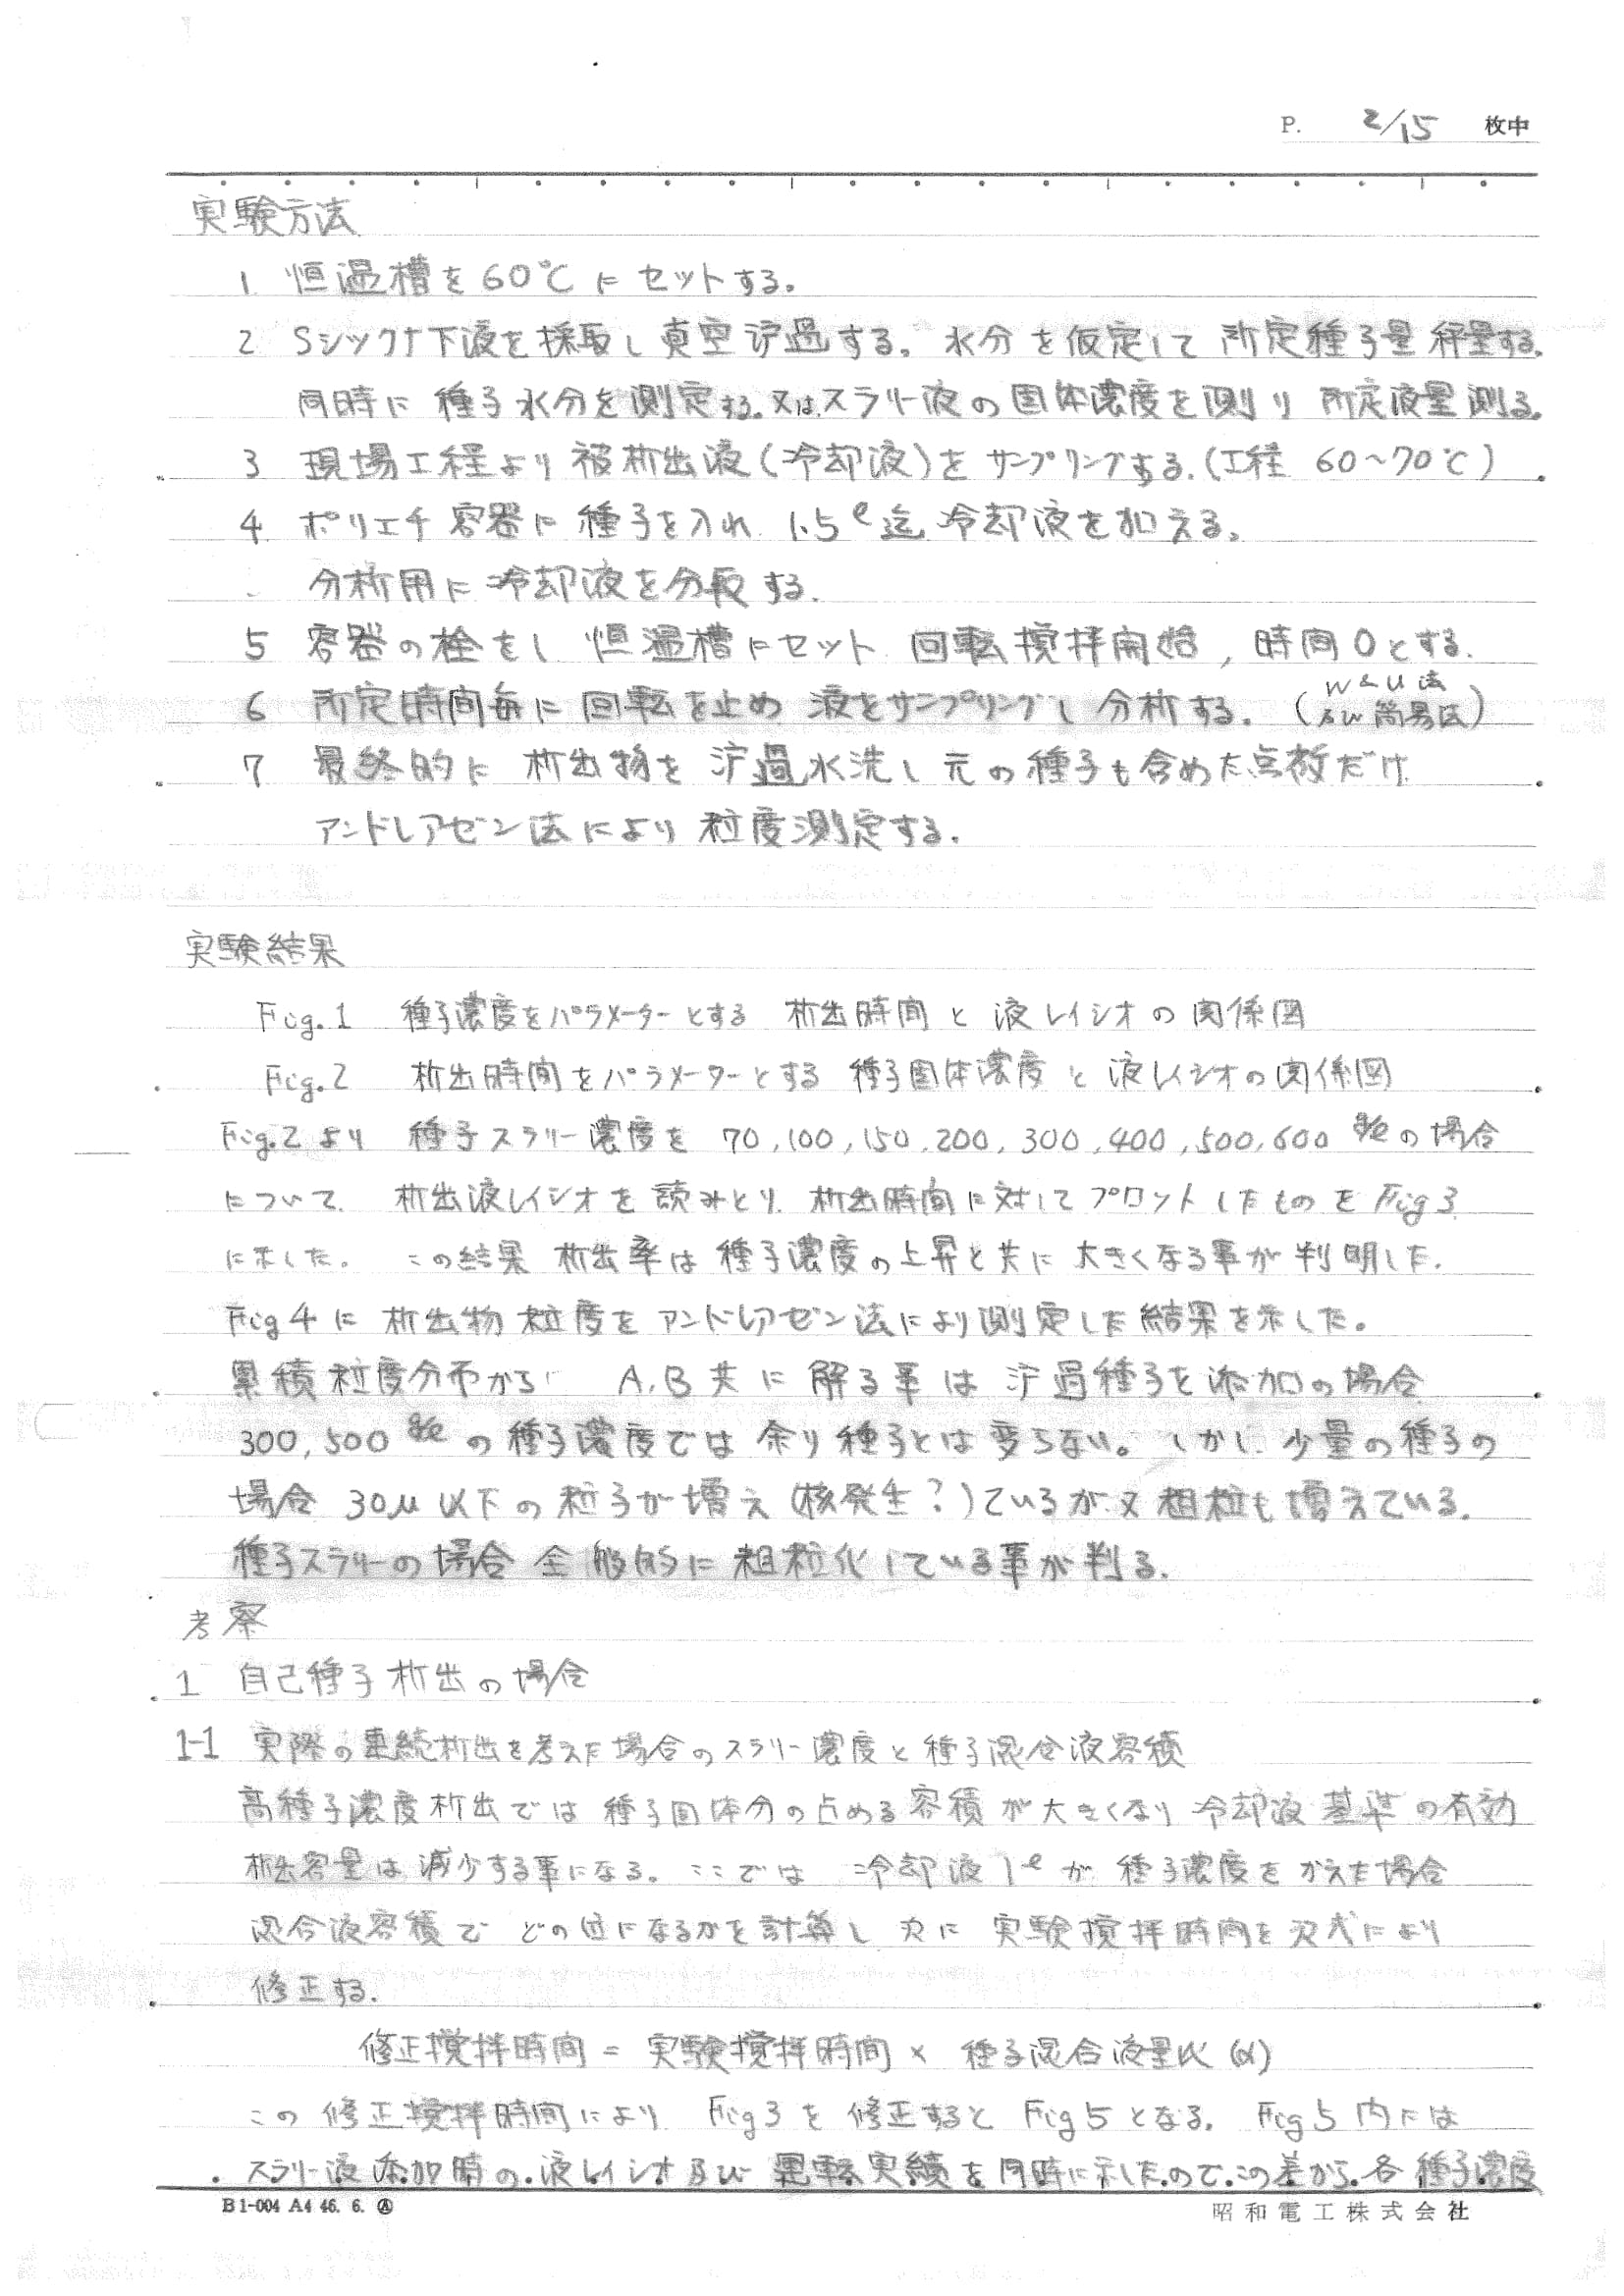 P. 2/15 枚中
実験方法
1. 恒温槽を60℃にセットする。
2 Sシックナ下液を採取し真空沪過する。水分を仮定して所定種子量秤量する。
同時に種子水分を測定する。又はスラリー液の固体濃度を測り所定液量測る。
3 現場工程より被析出液(冷却液)をサンプリングする。(工程 60~70℃)
4. ポリエチ容器に種子を入れ 1.5ℓ迄冷却液を加える。
分析用に冷却液を分取する。
5 容器の栓をし 恒温槽にセット 回転撹拌開始, 時間0とする。
6 所定時間毎に回転を止め 液をサンプリングし分析する。(W&U法 簡易法)
7 最終的に析出物を沪過水洗し元の種子も含めた点数だけ
アンドレアゼン法により粒度測定する。
実験結果
Fig.1 種子濃度をパラメーターとする 析出時間と液レイシオの関係図
Fig.2 析出時間をパラメーターとする 種子固体濃度と液レイシオの関係図
Fig.2より 種子スラリー濃度を 70,100,150,200,300,400,500,600 g/ℓの場合
について 析出液レイシオを読みとり 析出時間に対してプロットしたものをFig 3
に示した。 この結果 析出率は種子濃度の上昇と共に大きくなる事が判明した。
Fig 4に析出物粒度をアンドレアゼン法により測定した結果を示した。
累積粒度分布から A,B共に解る事は沪過種子を添加の場合
300,500 g/ℓ の種子濃度では余り種子とは変らない。しかし少量の種子の
場合 30μ以下の粒子が増え(核発生?)ているが又粗粒も増えている。
種子スラリーの場合全般的に粗粒化している事が判る。
考察
1 自己種子析出の場合
1-1 実際の連続析出を考えた場合のスラリー濃度と種子混合液容積
高種子濃度析出では種子固体分の占める容積が大きくなり冷却液基準の有効
析出容量は減少する事になる。ここでは 冷却液1ℓが種子濃度をかえた場合
混合液容積でどの位になるかを計算し 次に実験撹拌時間を次式により
修正する。
修正撹拌時間 = 実験撹拌時間 × 種子混合液量比 (α)
この修正撹拌時間により Fig3を修正すると Fig5となる。Fig5内には
スラリー液添加時の液レイシオ及び運転実績を同時に示したのでこの差から各種子濃度
B1-004 A4 46. 6. Ⓐ
昭和電工株式会社